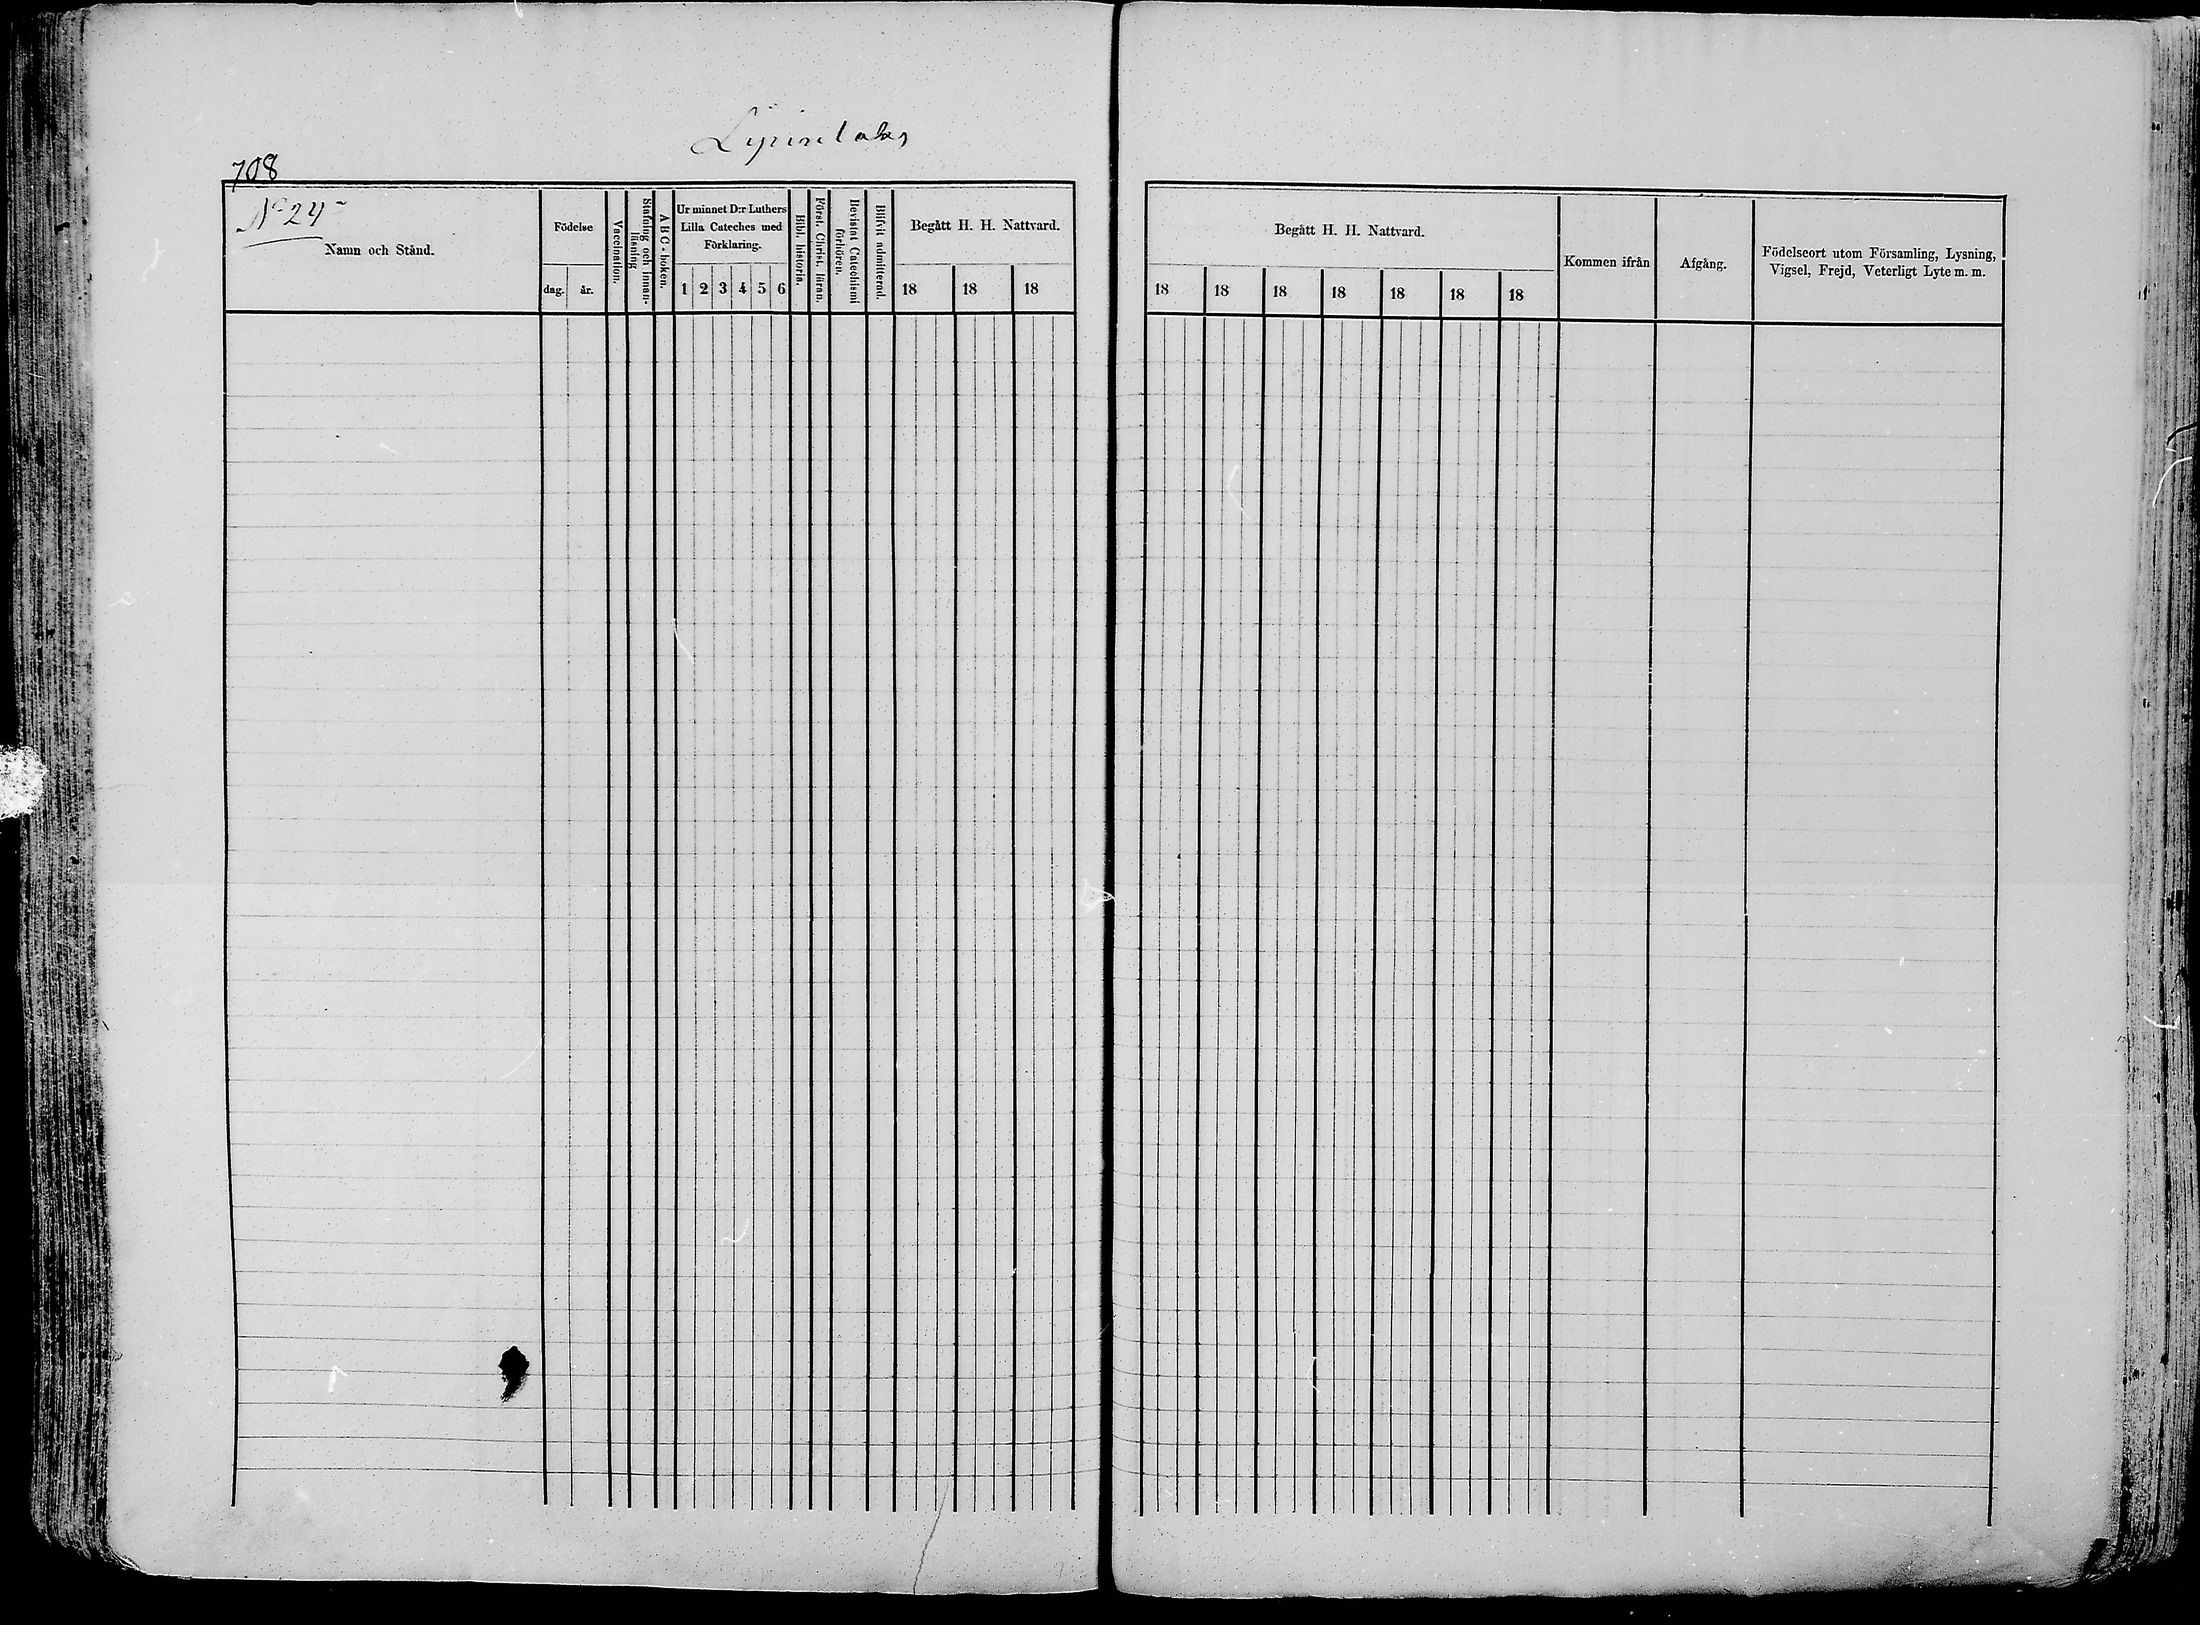 708
N:o 24
Namn och Stånd.
Födelse
dag.
år.
Vaccination.
Stafning och innan-
läsning
A B C-boken.
Ur minnet D:r Luthers
Lilla Cateches med
Förklaring.
1 2 3 4 5 6
Bibl. historia.
Först. Christ. läran.
Bevistat Catechismi
förhören.
Blifvit admitterad.
Begått H. H. Nattvard.
18 18 18
Begått H. H. Nattvard.
18 18 18 18 18 18 18
Kommen ifrån
Afgång.
Födelseort utom Församling, Lysning,
Vigsel, Frejd, Veterligt Lyte m. m.